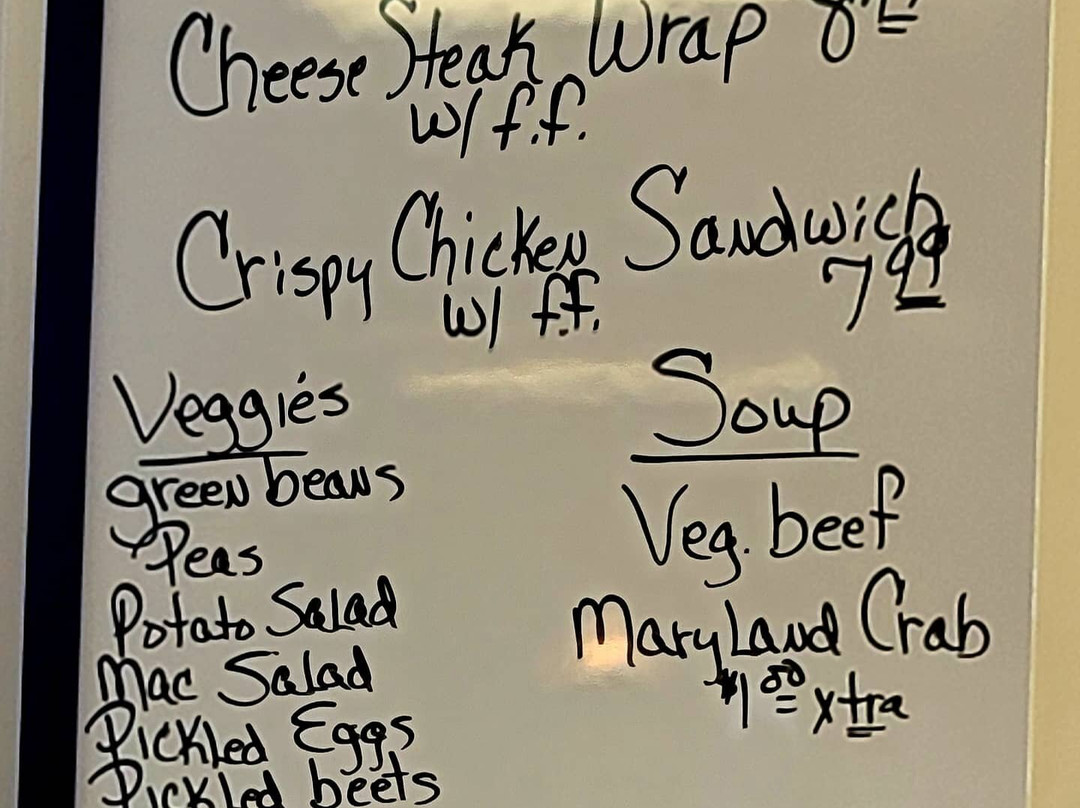 Cheese Steak Wrap
w/ f.f.
Crispy Chicken Sandwich
w/ f.f. 7 99
Veggies
green beans
Peas
Potato Salad
Mac Salad
Pickled Eggs
Pickled beets
Soup
Veg. beef
Maryland Crab
$1 50 xtra